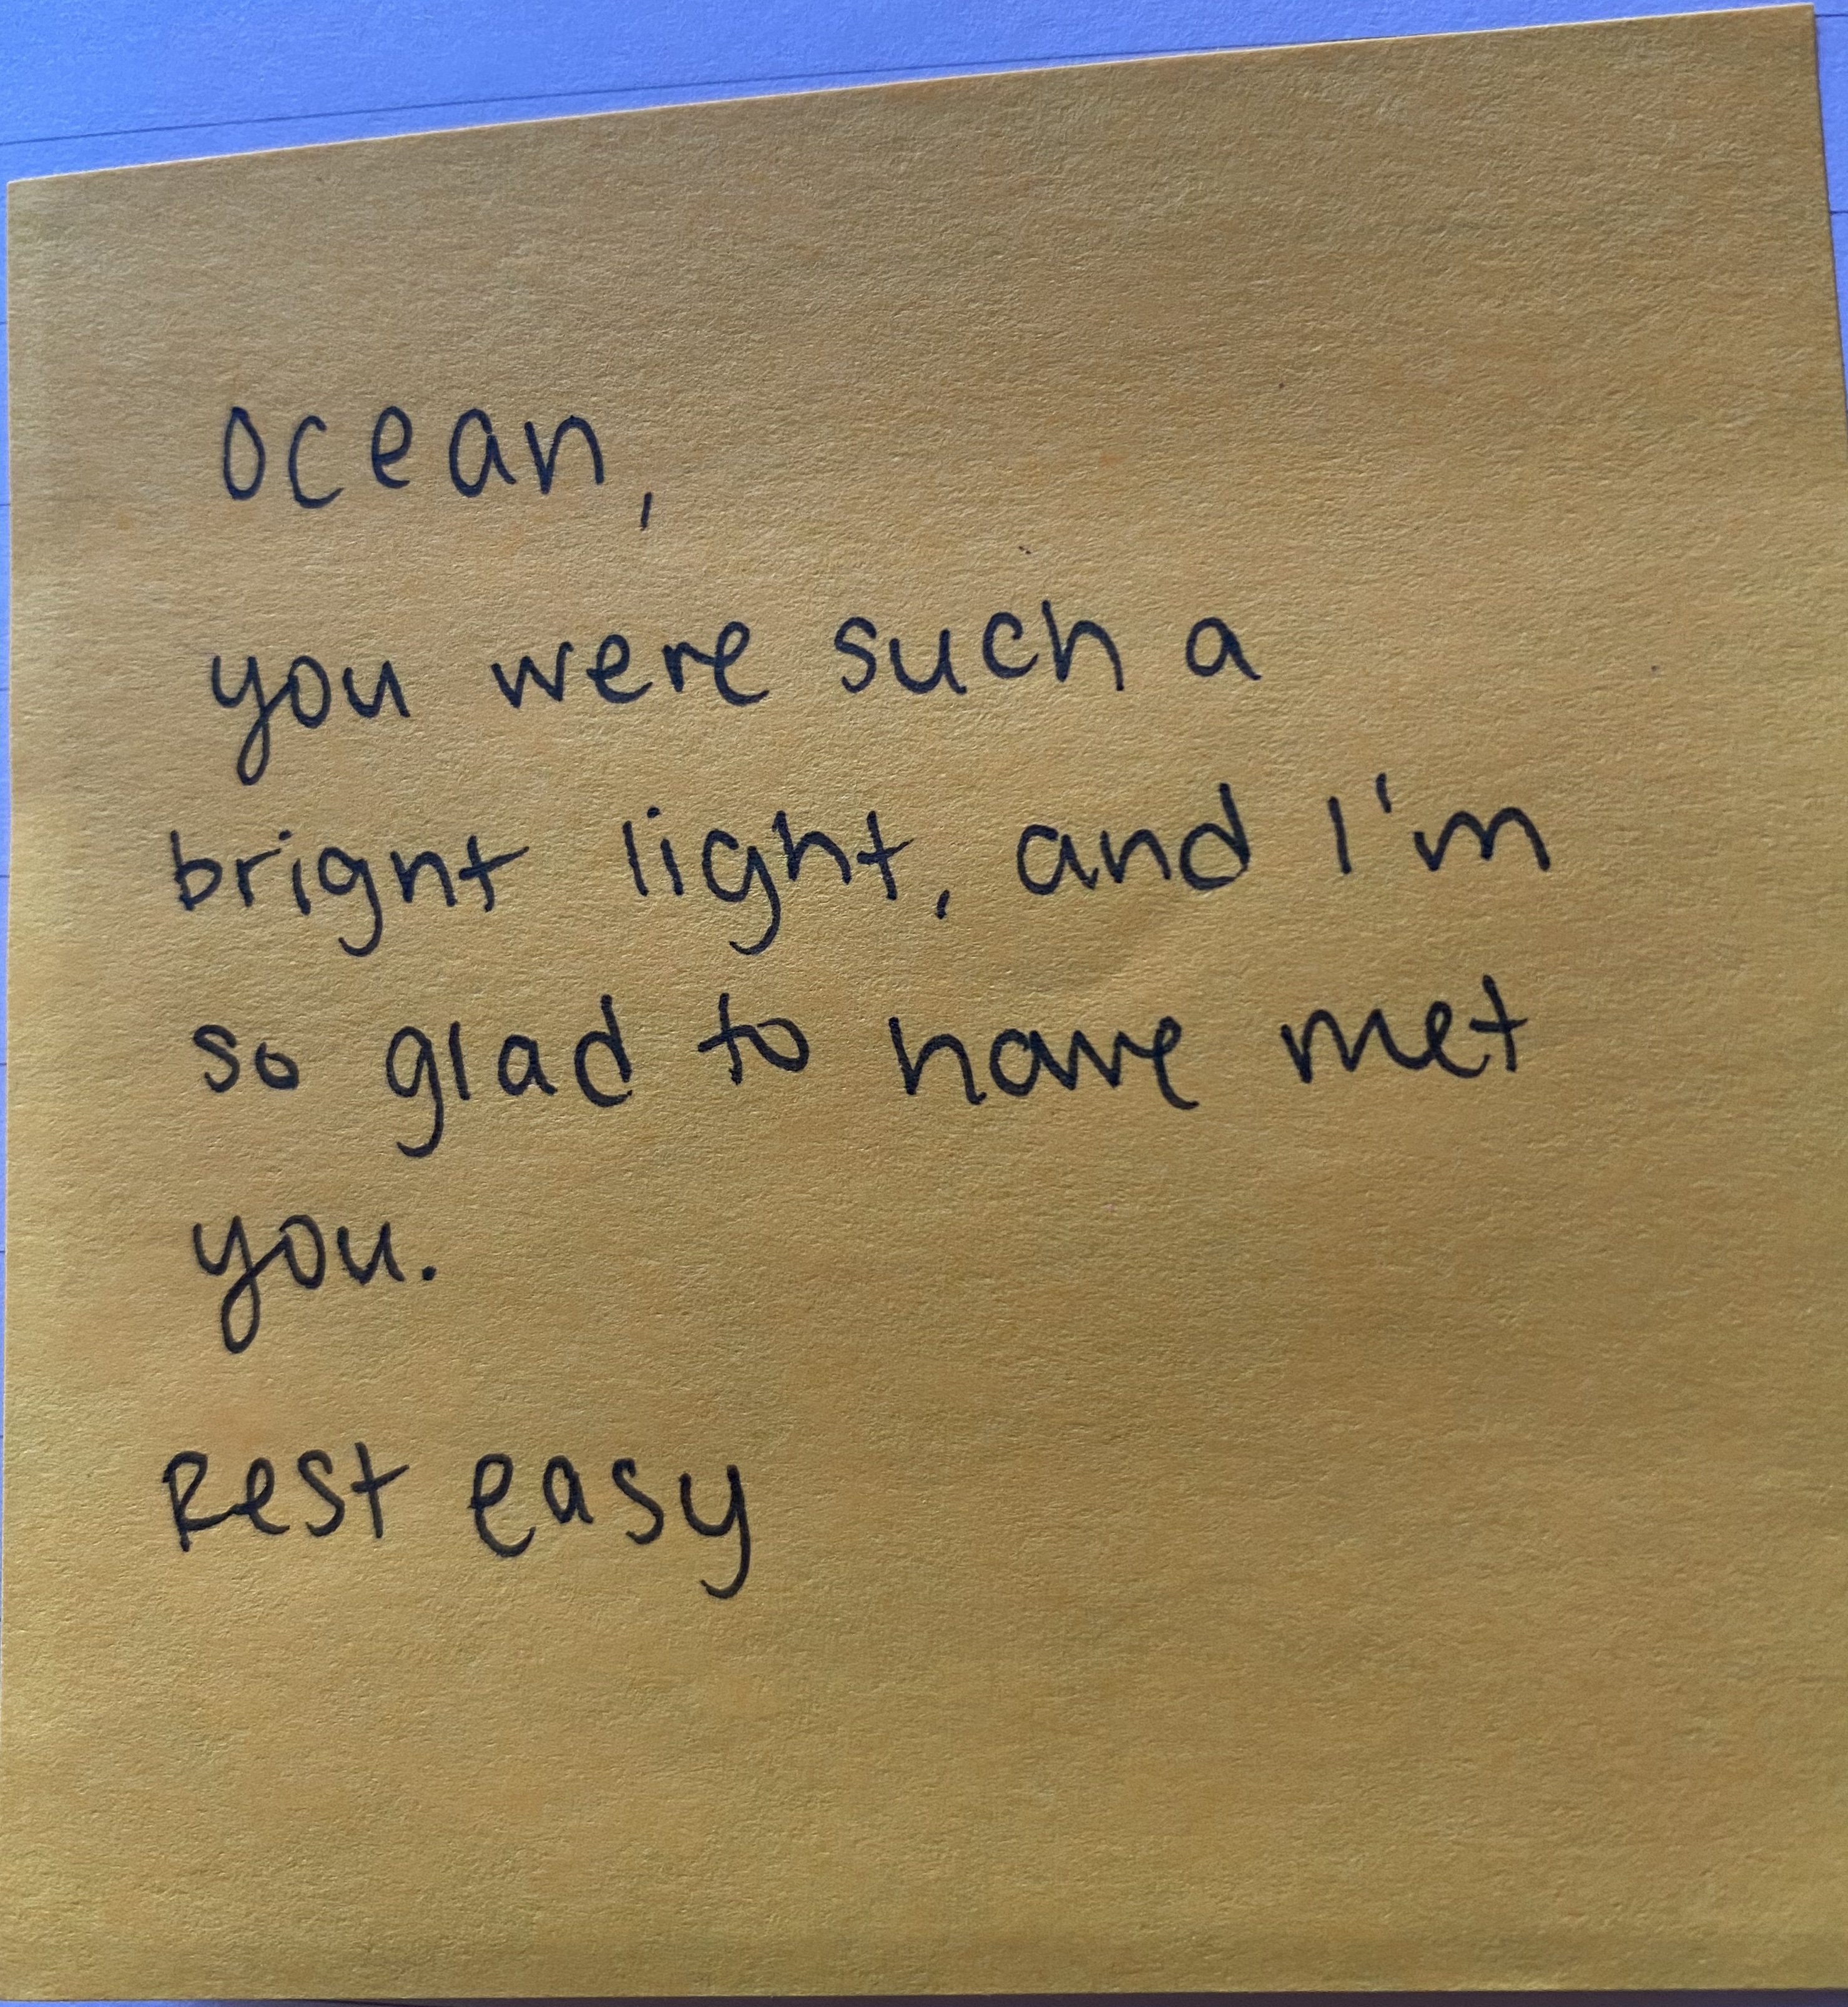 ocean,
you were such a
bright light, and I'm
so glad to have met
you.
Rest easy